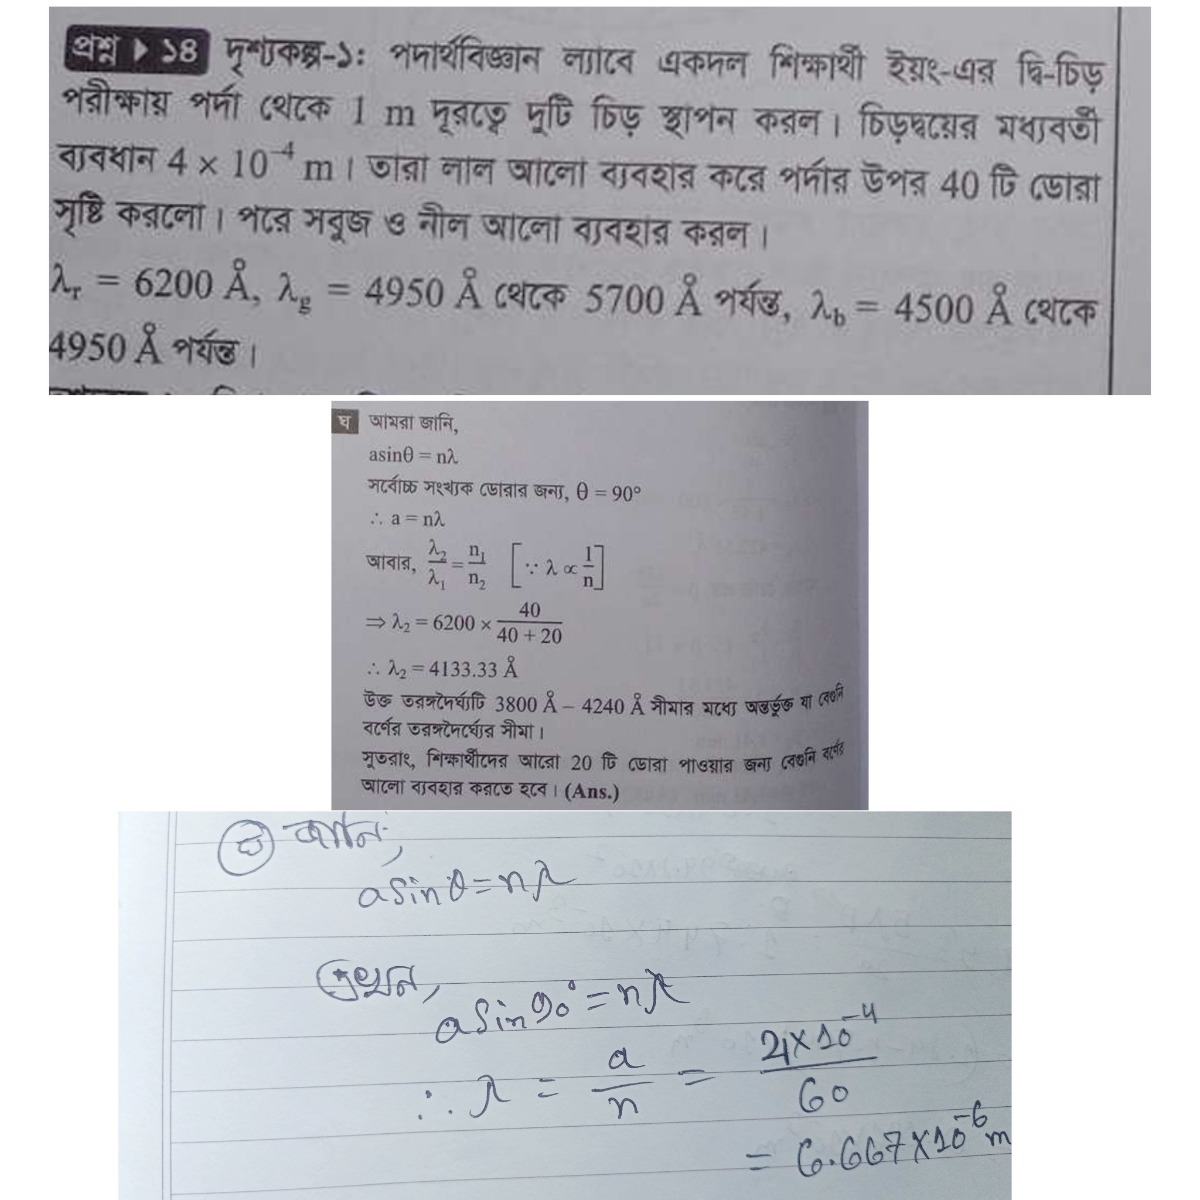 প্রশ্ন ▶ ১৪ দৃশ্যকল্প-১: পদার্থবিজ্ঞান ল্যাবে একদল শিক্ষার্থী ইয়ং-এর দ্বি-চিড়
পরীক্ষায় পর্দা থেকে 1 m দূরত্বে দুটি চিড় স্থাপন করল। চিড়দ্বয়ের মধ্যবর্তী
ব্যবধান 4 × 10⁻⁴ m। তারা লাল আলো ব্যবহার করে পর্দার উপর 40 টি ডোরা
সৃষ্টি করলো। পরে সবুজ ও নীল আলো ব্যবহার করল।
λr = 6200 Å, λg = 4950 Å থেকে 5700 Å পর্যন্ত, λb = 4500 Å থেকে
4950 Å পর্যন্ত।
ঘ আমরা জানি,
asinθ = nλ
সর্বোচ্চ সংখ্যক ডোরার জন্য, θ = 90°
∴ a = nλ
আবার, λ₂/λ₁ = n₁/n₂ [∵ λ ∝ 1/n]
⇒ λ₂ = 6200 × 40/(40 + 20)
∴ λ₂ = 4133.33 Å
উক্ত তরঙ্গদৈর্ঘ্যটি 3800 Å – 4240 Å সীমার মধ্যে অন্তর্ভুক্ত যা বেগুনি
বর্ণের তরঙ্গদৈর্ঘ্যের সীমা।
সুতরাং, শিক্ষার্থীদের আরো 20 টি ডোরা পাওয়ার জন্য বেগুনি বর্ণের
আলো ব্যবহার করতে হবে। (Ans.)
ঘ জানি,
asinθ = nλ
এখন,
asin90° = nλ
∴ λ = a/n = 4×10⁻⁴/60
= 6.667×10⁻⁶ m